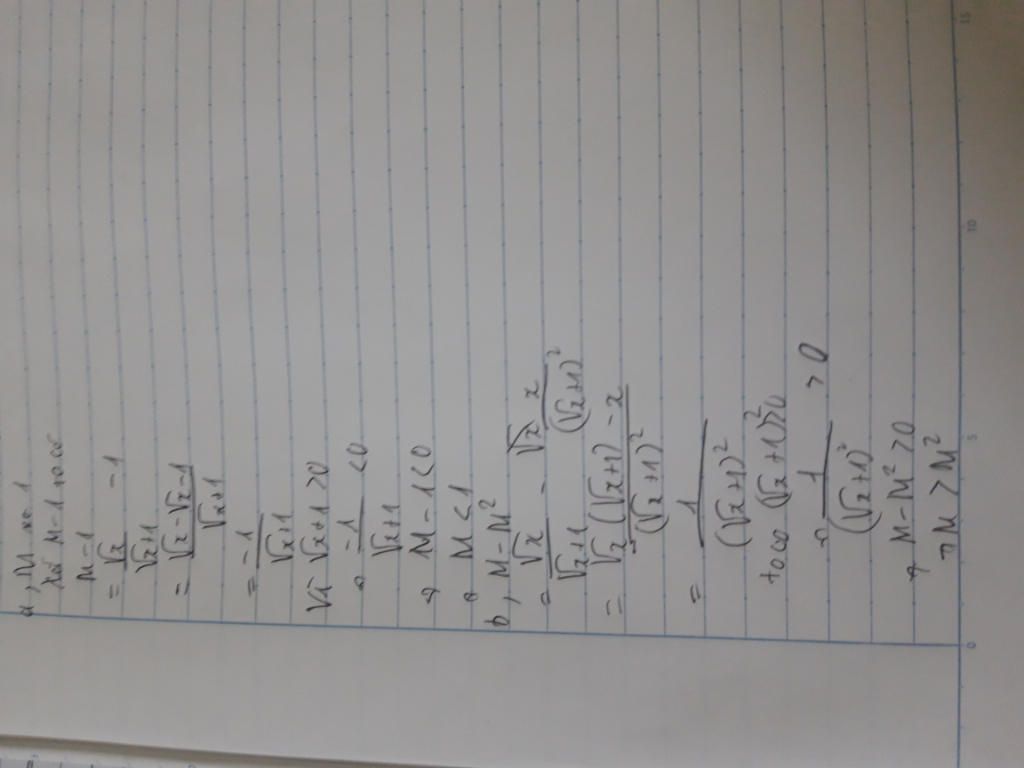 a, M và 1
Xét M-1 ta có
M-1
= √x/(√x+1) - 1
= (√x-√x-1)/(√x+1)
= -1/(√x+1)
Vì √x+1 > 0
⇒ -1/(√x+1) < 0
⇒ M-1 < 0
⇒ M < 1
b, M-M²
= √x/(√x+1) - x/(√x+1)²
= (√x(√x+1)-x)/(√x+1)²
= 1/(√x+1)²
ta có (√x+1)² > 0
⇒ 1/(√x+1)² > 0
⇒ M-M² > 0
⇒ M > M²
0 5 10 15